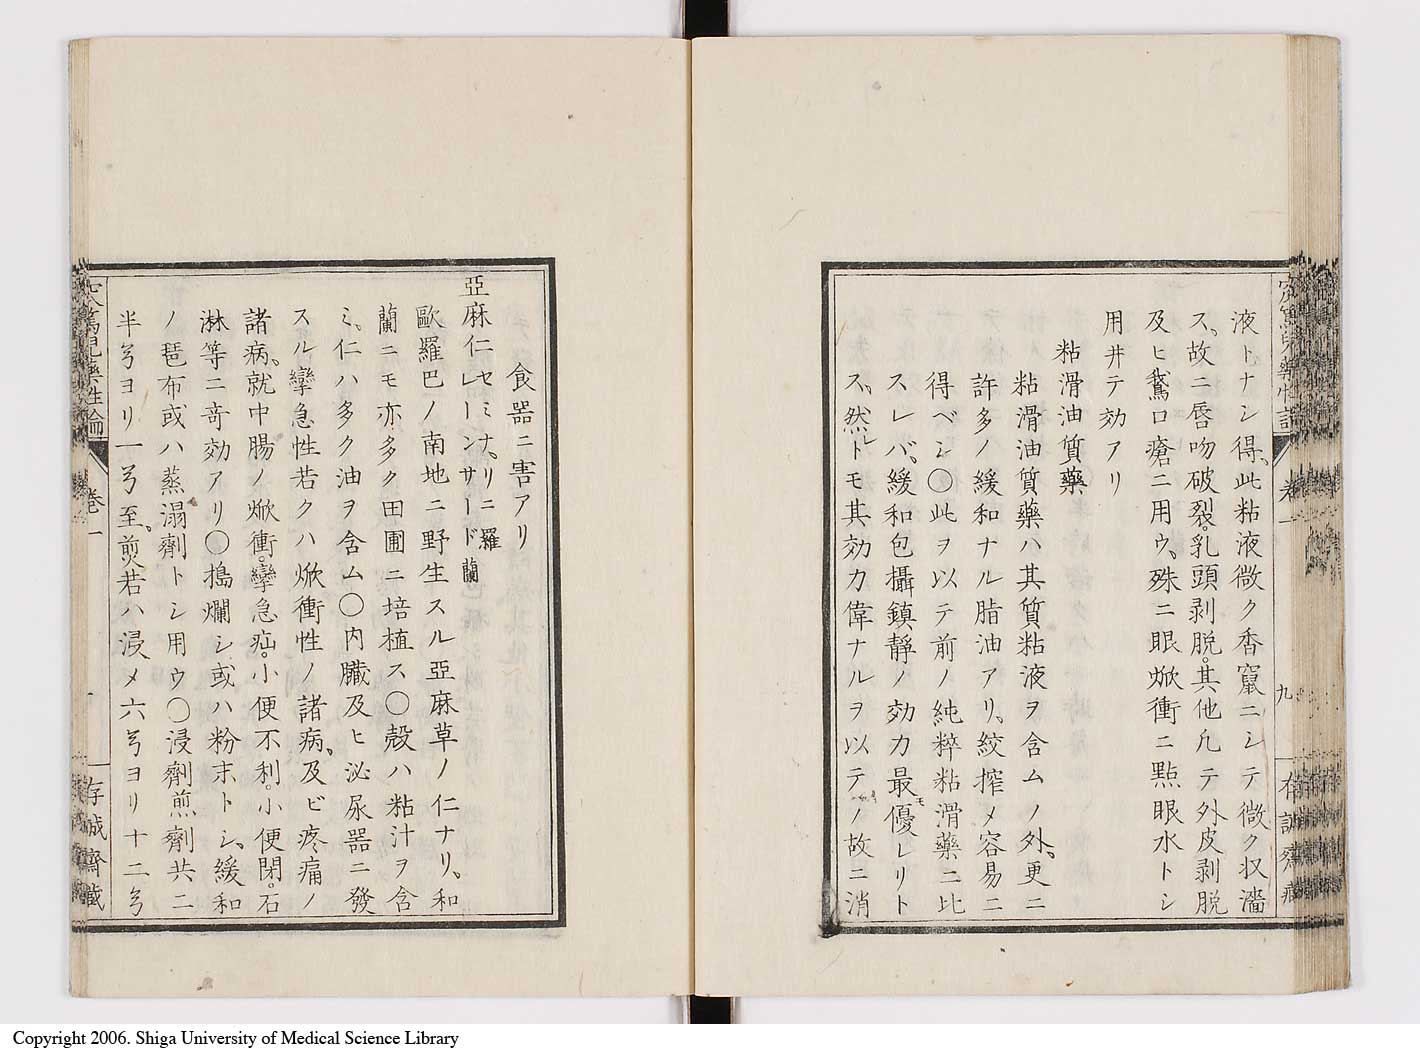 液トナシ得、此粘液微ク香竄ニシテ微ク収濇
ス、故ニ唇吻破裂。乳頭剥脱。其他凢テ外皮剥脱
及ヒ鵞口瘡ニ用ウ、殊ニ眼焮衝ニ點眼水トシ
用井テ効アリ
粘滑油質藥
粘滑油質藥ハ其質粘液ヲ含ムノ外、更ニ
許多ノ緩和ナル脂油アリ、絞搾メ容易ニ
得ベシ〇此ヲ以テ前ノ純粹粘滑藥ニ比
スレバ、緩和包攝鎮静ノ効力最モ優レリト
ス、然レトモ其効力偉ナルヲ以テノ故ニ消
藥性論
卷一
九
食器ニ害アリ
亞麻仁セミナ、リニ羅
レーンサード蘭
歐羅巴ノ南地ニ野生スル亞麻草ノ仁ナリ、和
蘭ニモ亦多ク田圃ニ培植ス〇殻ハ粘汁ヲ含
ミ、仁ハ多ク油ヲ含ム〇内臓及ヒ泌尿器ニ發
スル攣急性若クハ焮衝性ノ諸病、及ビ疼痛ノ
諸病、就中腸ノ焮衝。攣急疝。小便不利。小便閉。石
淋等ニ竒効アリ〇搗爛シ或ハ粉末トシ、緩和
ノ琶布或ハ蒸溻劑トシ用ウ〇浸劑煎劑共ニ
半弓ヨリ一弓至、煎若ハ浸メ六弓ヨリ十二弓
藥性論
卷一
存誠齋藏
Copyright 2006. Shiga University of Medical Science Library